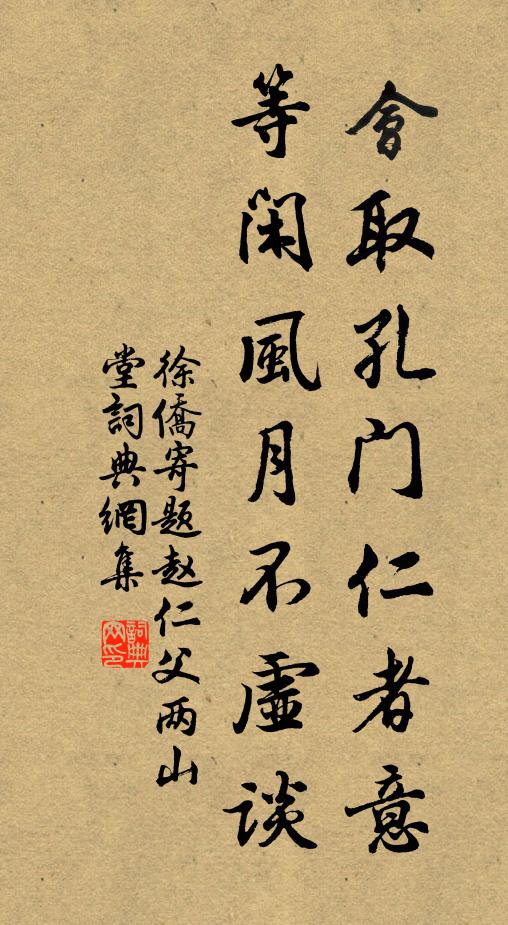 會取孔门仁者意
等閑風月不虛談
徐僑寄題赵仁父两山
堂詞典網集
詞典
网印